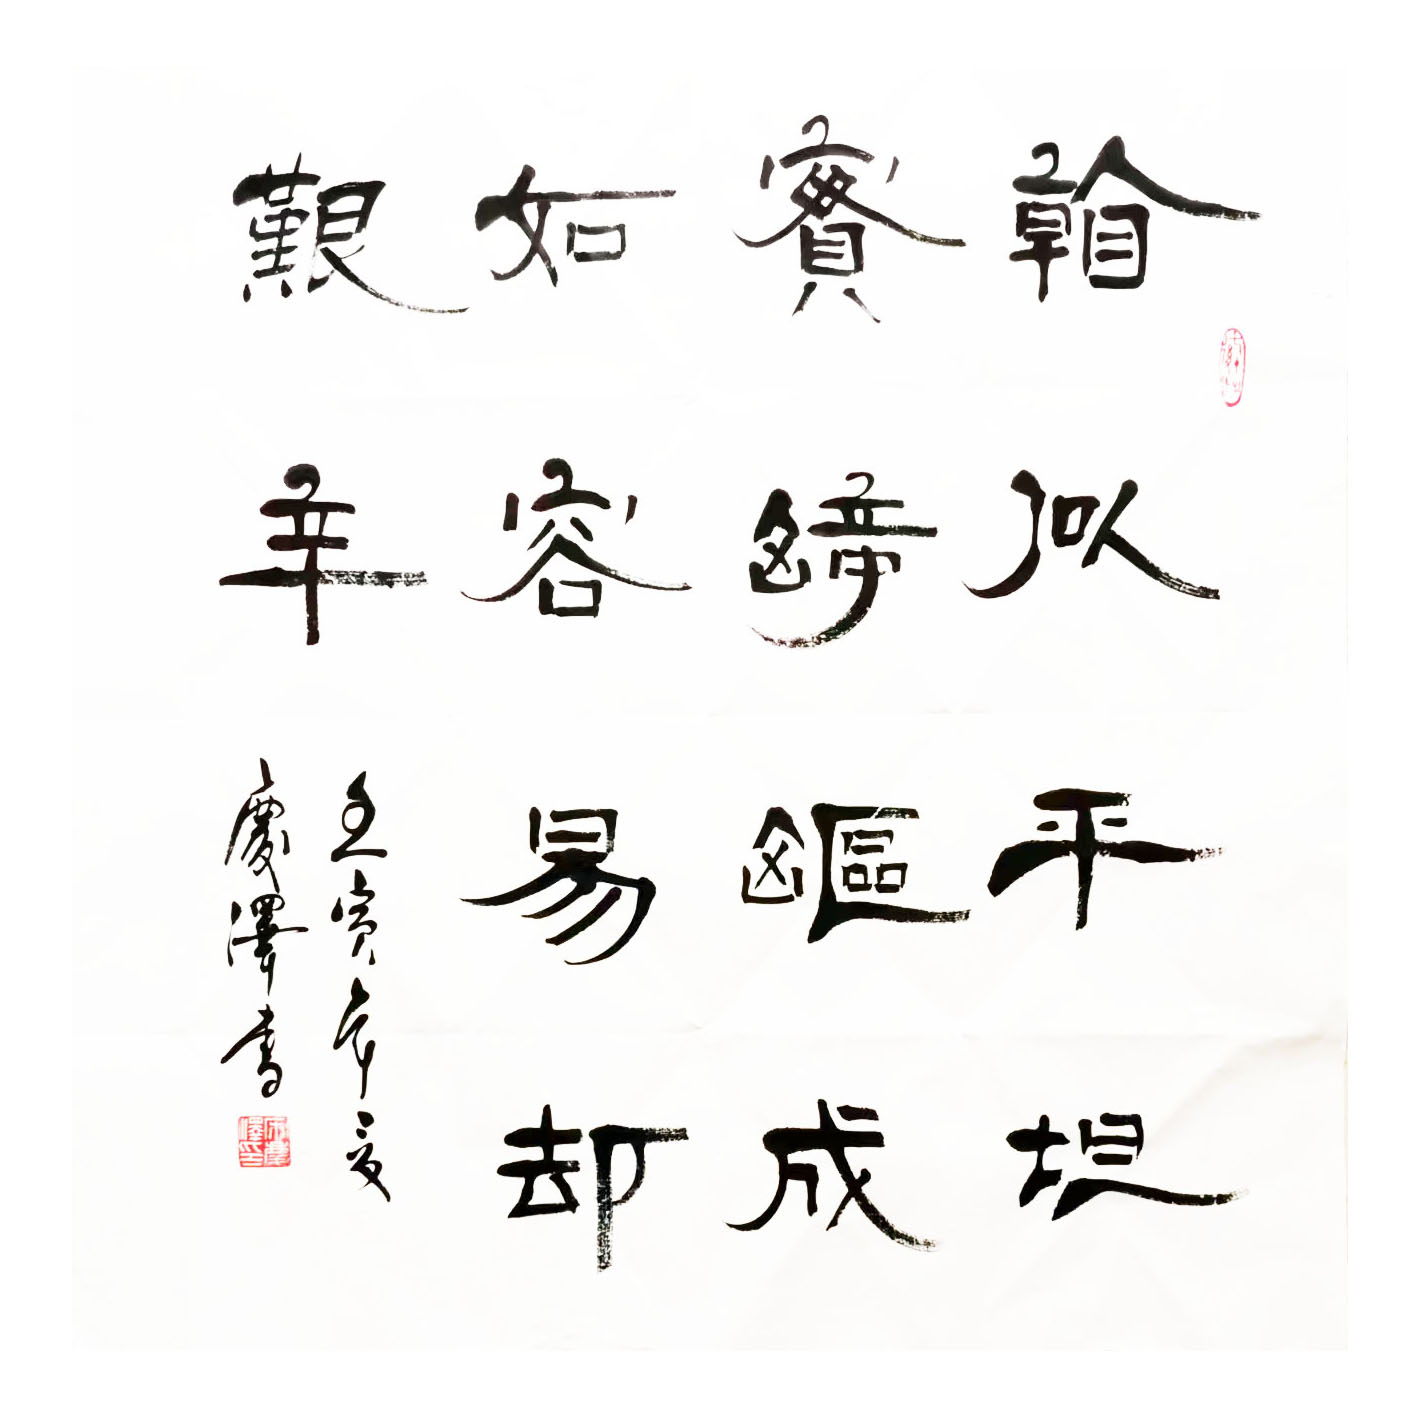 看似平坦
實崎嶇成
如容易却
艱辛
壬寅年夏
慶澤書